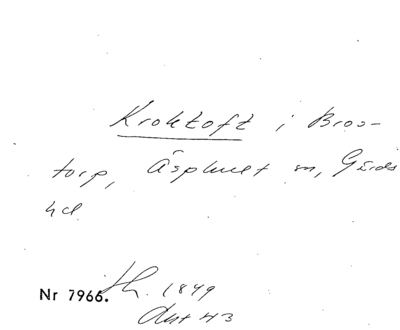 Kroktoft i Bros-
torp, Äsphult sn, Gärds
hd
Nr 7966. Lh. 1849
Akt 43